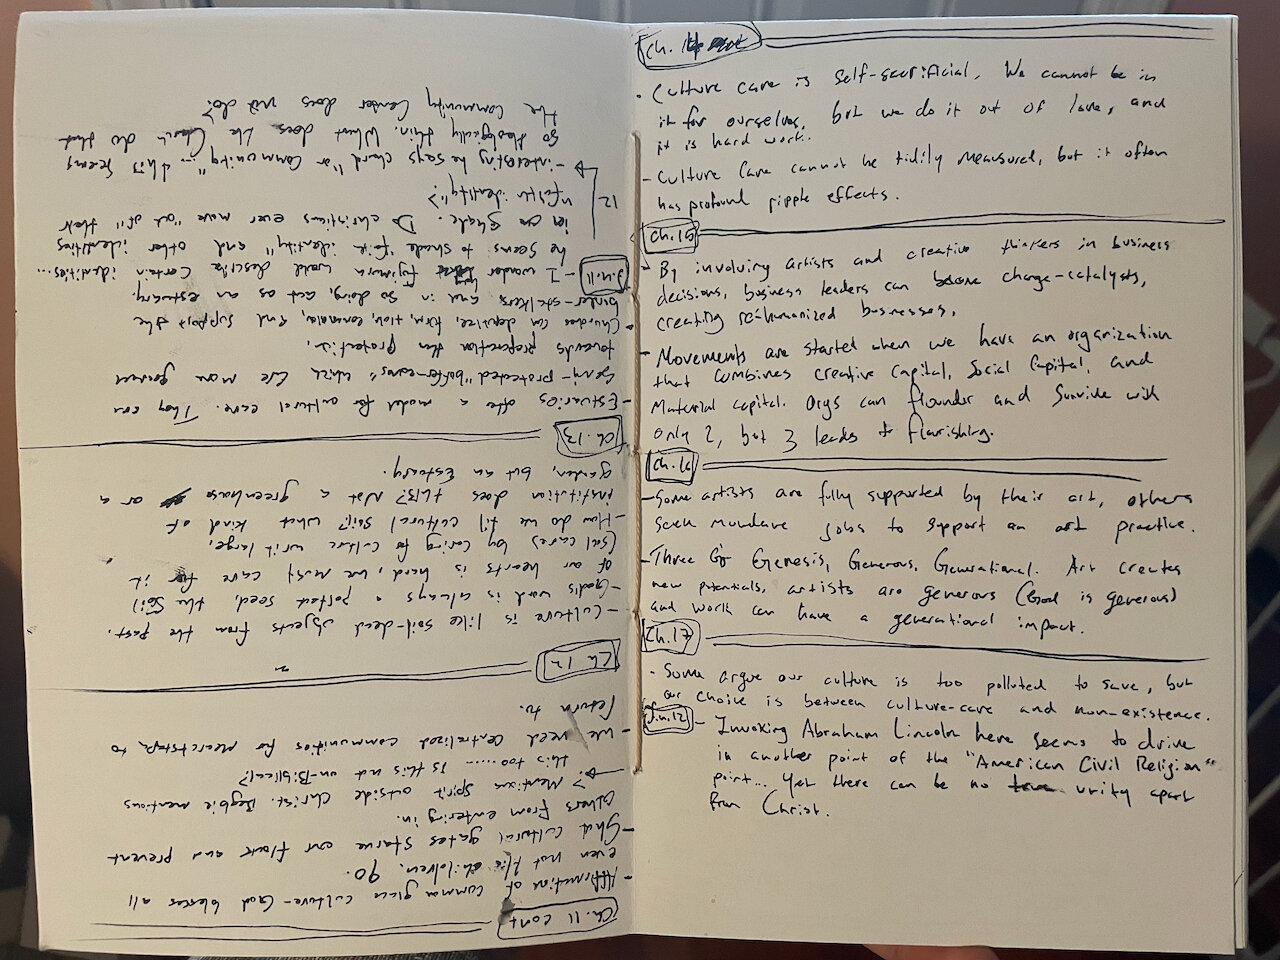 Ch. 11 cont
- Affirmation of common grace culture - God blesses all
even not his children. 90.
- Shut cultural gates starve our flock and prevent
others from entering in.
> Mentions spirit outside Christ. Begbie mentions
this too...... Is this not un-Biblical?
- We need centralized communities for mearcstapa to
return to.
Ch. 12
- Culture is like soil - dead objects from the past.
- God's word is always a perfect seed, the soil
of our hearts is hard, we must care for it
(soul care) by caring for culture writ large.
- How do we till cultural soil? what kind of
institution does this? Not a greenhouse or a
garden, but an Estuary.
Ch. 13
- Estuaries offer a model for cultural care. They are
Semi-protected "buffer-zones" which are more geared
towards preparation than protection.
- Churches can the
border-stalkers and in so doing, act as an estuary.
J.n.11 - I wonder how Fujimura would describe certain identities...
he seems to shade faith "identity" and "other identities
in one shade. Do christians ever move "out of" their
"faith identity"?
12
- interesting he says church "or community"... this seems
so theologically thin. What does the Church do that
the Community Center does not do?
Ch. 14
- Culture care is self-sacrificial. We cannot be in
it for ourselves, but we do it out of love, and
it is hard work.
- Culture Care cannot be tidily measured, but it often
has profound ripple effects.
Ch. 15
- By involving artists and creative thinkers in business
decisions, business leaders can become change-catalysts,
creating re-humanized businesses.
- Movements are started when we have an organization
that combines creative capital, Social Capital, and
Material capital. Orgs can flounder and survive with
only 2, but 3 leads to flourishing.
Ch. 16
- Some artists are fully supported by their art, others
seek mundane jobs to support an art practice.
- Three G's Genesis, Generous, Generational. Art creates
new potentials, artists are generous (God is generous)
and work can have a generational impact.
Ch. 17
- Some argue our culture is too polluted to save, but
our choice is between culture-care and non-existence.
J.n.12 - Invoking Abraham Lincoln here seems to drive
in another point of the "American Civil Religion"
point... Yet there can be no unity apart
from Christ.